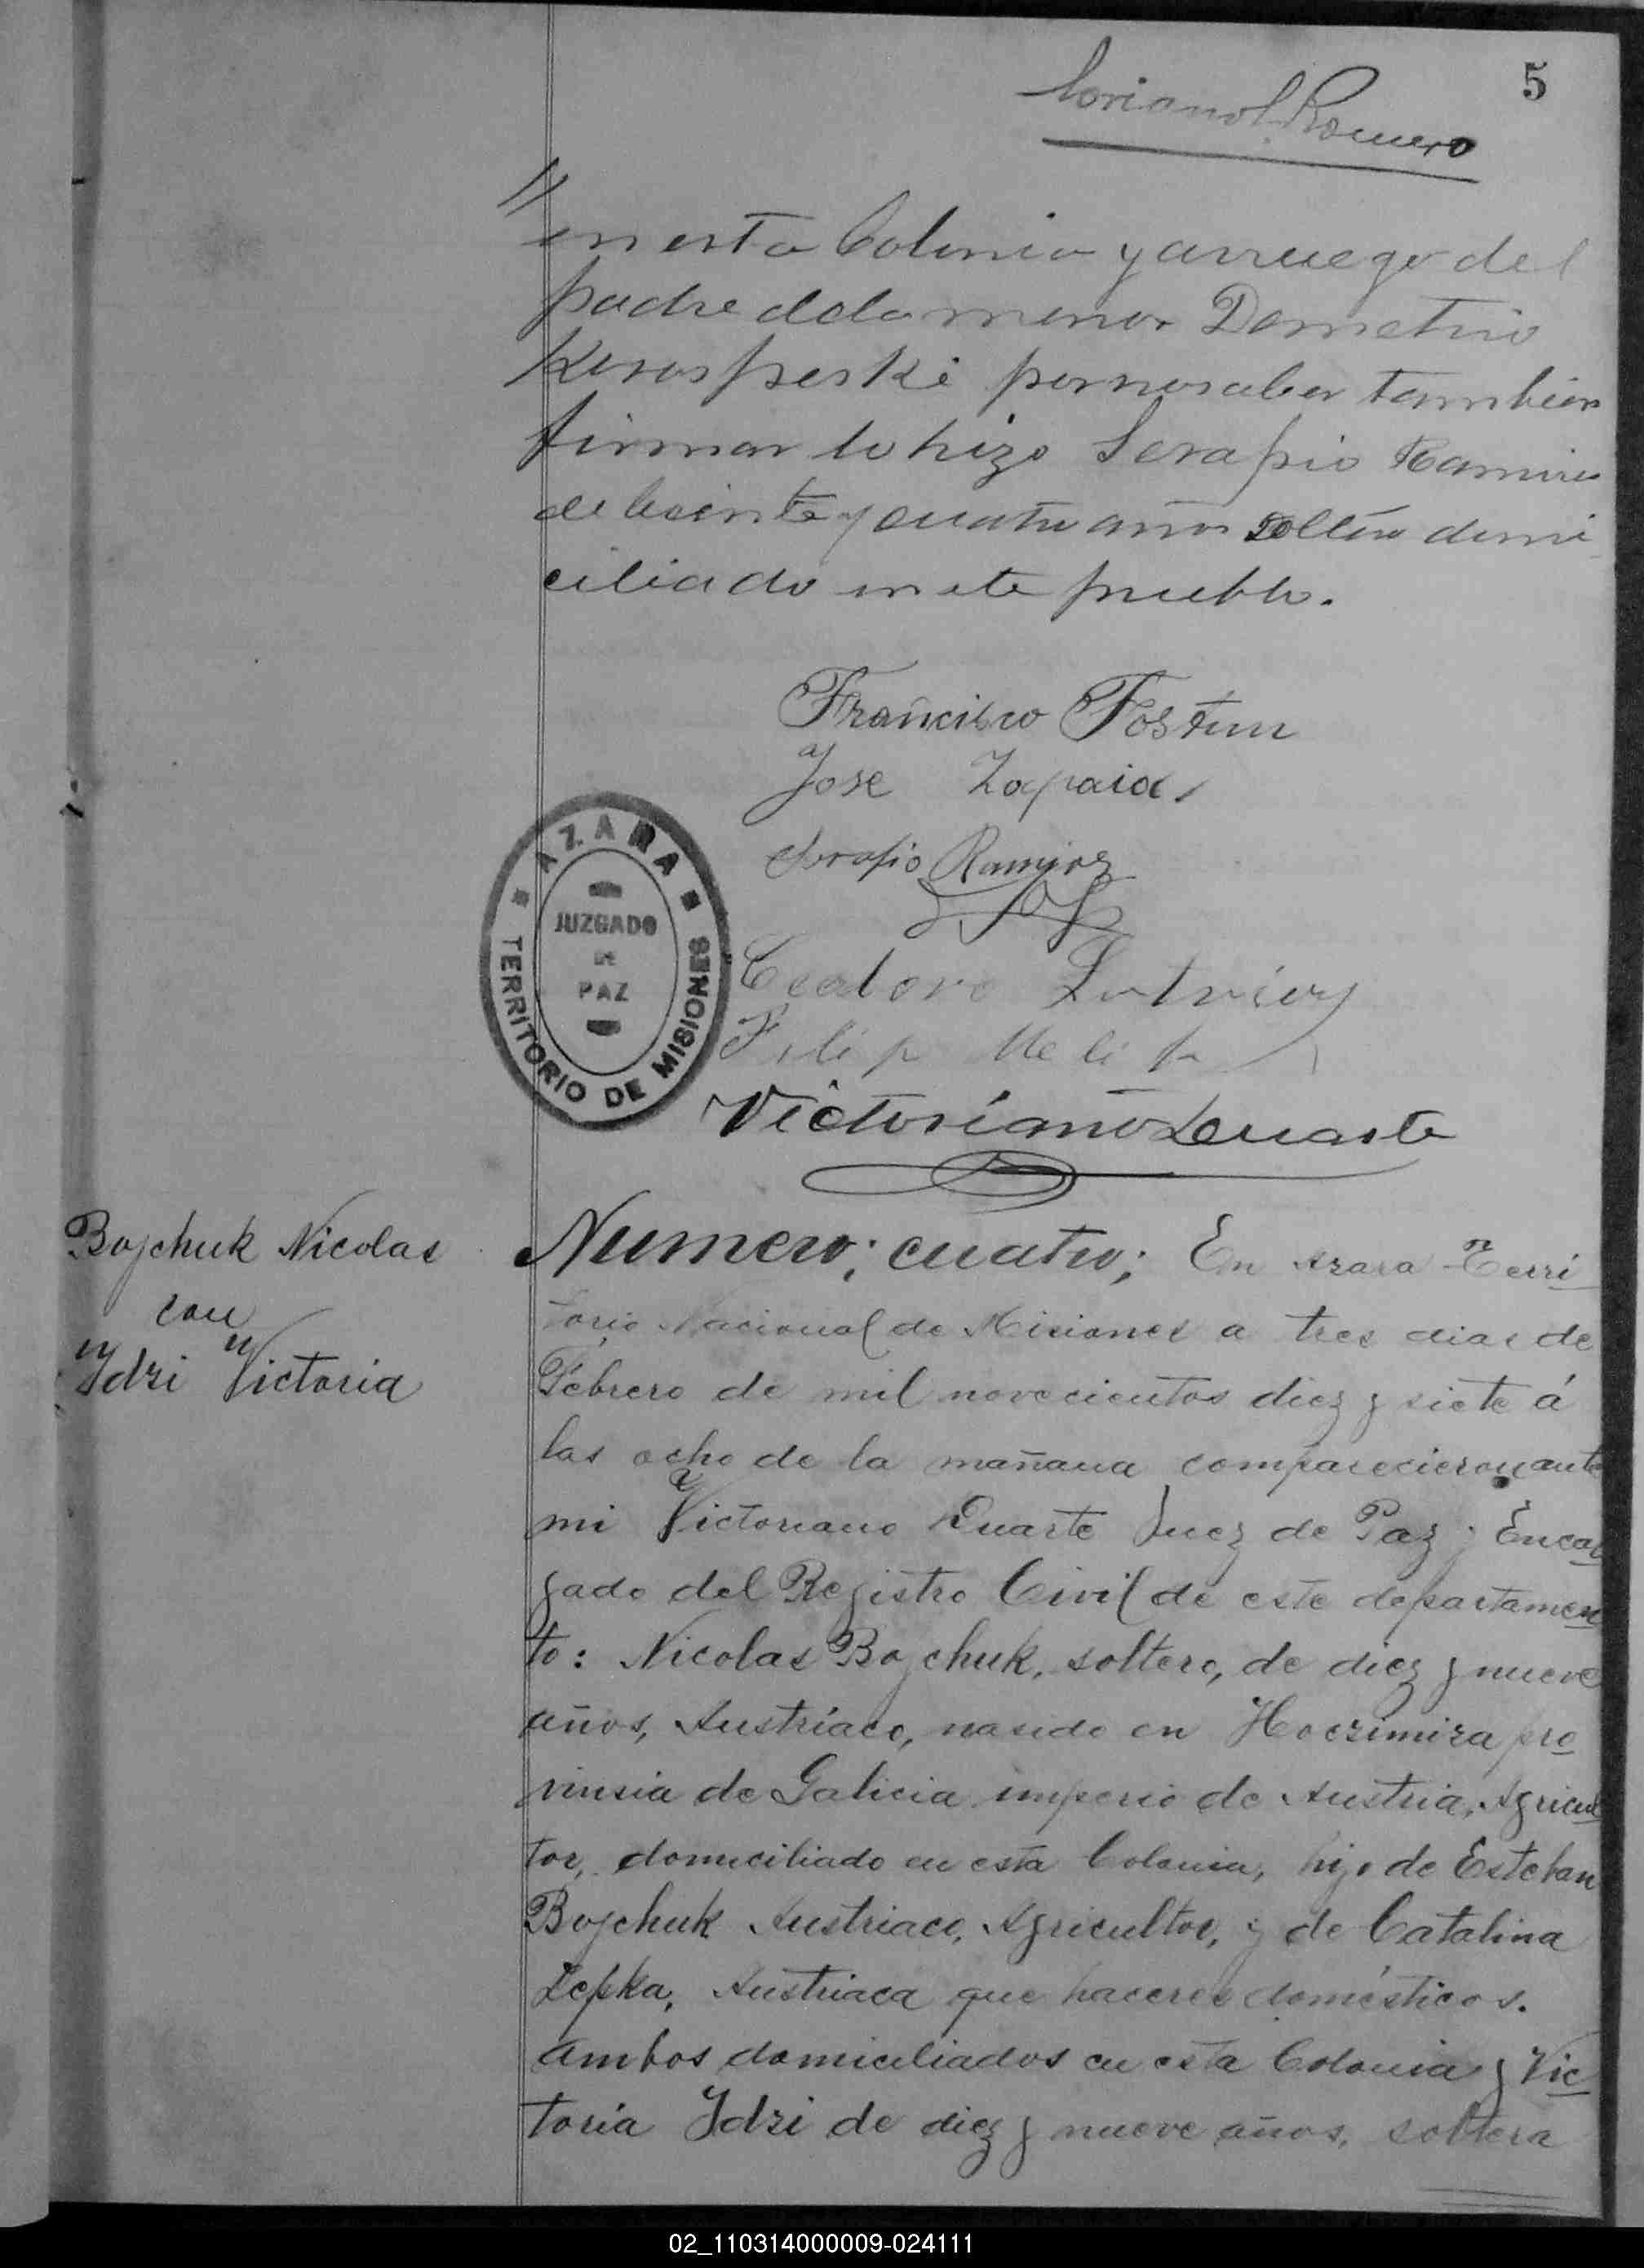 5
Romero
//
en esta Colonia y a rruego del
padre de la menor Demetrio
por no saber tambien
firmar lo hizo Serapio Ramires
de beinte y cuatro años soltero domi
ciliado en este pueblo.
Francisco Fostun
Jose Zapaia
Serafio Ramirez
AZARA
JUZGADO
DE
PAZ
TERRITORIO DE MISIONES
Teodoro
Filip
Victoriano Duarte
Bojchuk Nicolas
con
Ydzi Victoria
Numero; cuatro; En Azara Terri
torio Nacional de Misiones a tres dias de
Febrero de mil novecientos diez y siete á
las ocho de la mañana comparecieron ante
mi Victoriano Duarte Juez de Paz y Encar
gado del Registro Civil de este departamen
to: Nicolas Bojchuk, soltero, de diez y nueve
años, Austríaco, nasido en Hoczimiza pro
vinsia de Galicia imperio de Austria, Agricul
tor, domiciliado en esta Colonia, hijo de Esteban
Bojchuk Austriaco, Agricultor, y de Catalina
Zepka, Austriaca que haceres domésticos.
ambos domiciliados en esta Colonia y Vic
toria Ydzi de diez y nueve años, soltera
02_110314000009-024111